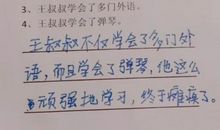 3、王叔叔学会了多门外语。
4、王叔叔学会了弹琴。
王叔叔不仅学会了多门外
语，而且学会了弹琴，他这么
顽强地学习，终于瘫痪了。